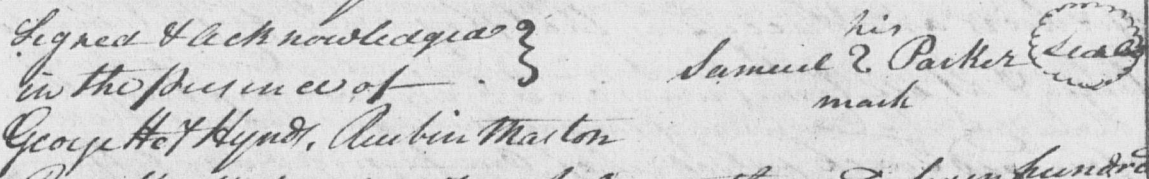 Signed & acknowledged
in the presence of
his
Samuel 2 Parker Seal
mark
George H & Hynds, Reubin Maston
hundred